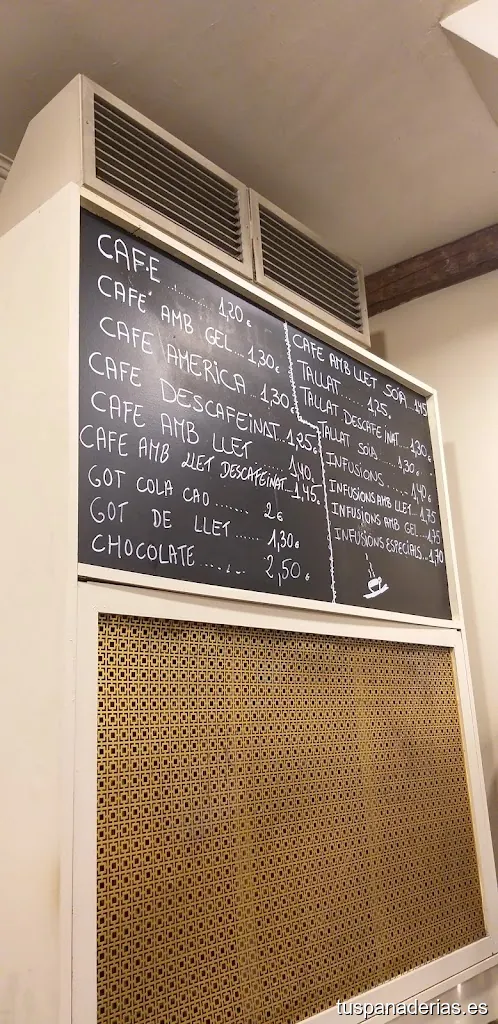 CAFE ......... 1,20 €
CAFE AMB GEL... 1,30 €
CAFE AMERICA... 1,30 €
CAFE DESCAFEINAT. 1,25 €
CAFE AMB LLET ... 1,40.
CAFE AMB LLET DESCAFEINAT... 1,45.
GOT COLA CAO ....... 2 €
GOT DE LLET ...... 1,30 €
CHOCOLATE ........ 2,50 €
CAFE AMB LLET SOJA 1,45
TALLAT ..... 1,25.
TALLAT DESCAFEINAT... 1,30 €
TALLAT SOJA ... 1,30 €
INFUSIONS ..... 1,40 €
INFUSIONS AMB LLET.. 1,75
INFUSIONS AMB GEL.. 1,75
INFUSIONS ESPECIALS.. 1,70
tuspanaderias.es